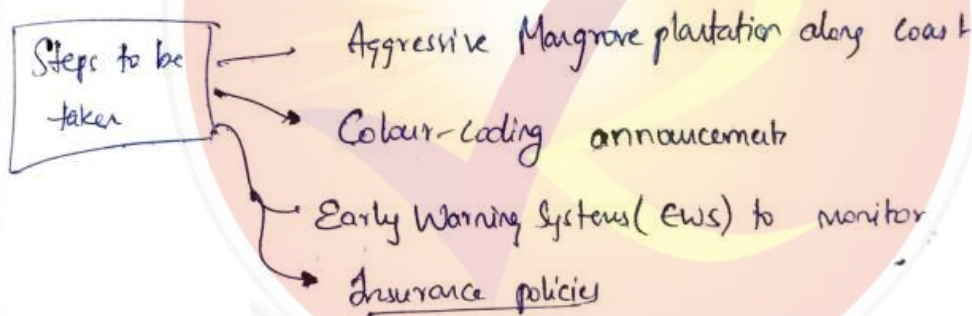 Steps to be
taken
Aggressive Mangrove plantation along coast
Colour-coding announcements
Early Warning Systems (EWS) to monitor
Insurance policies